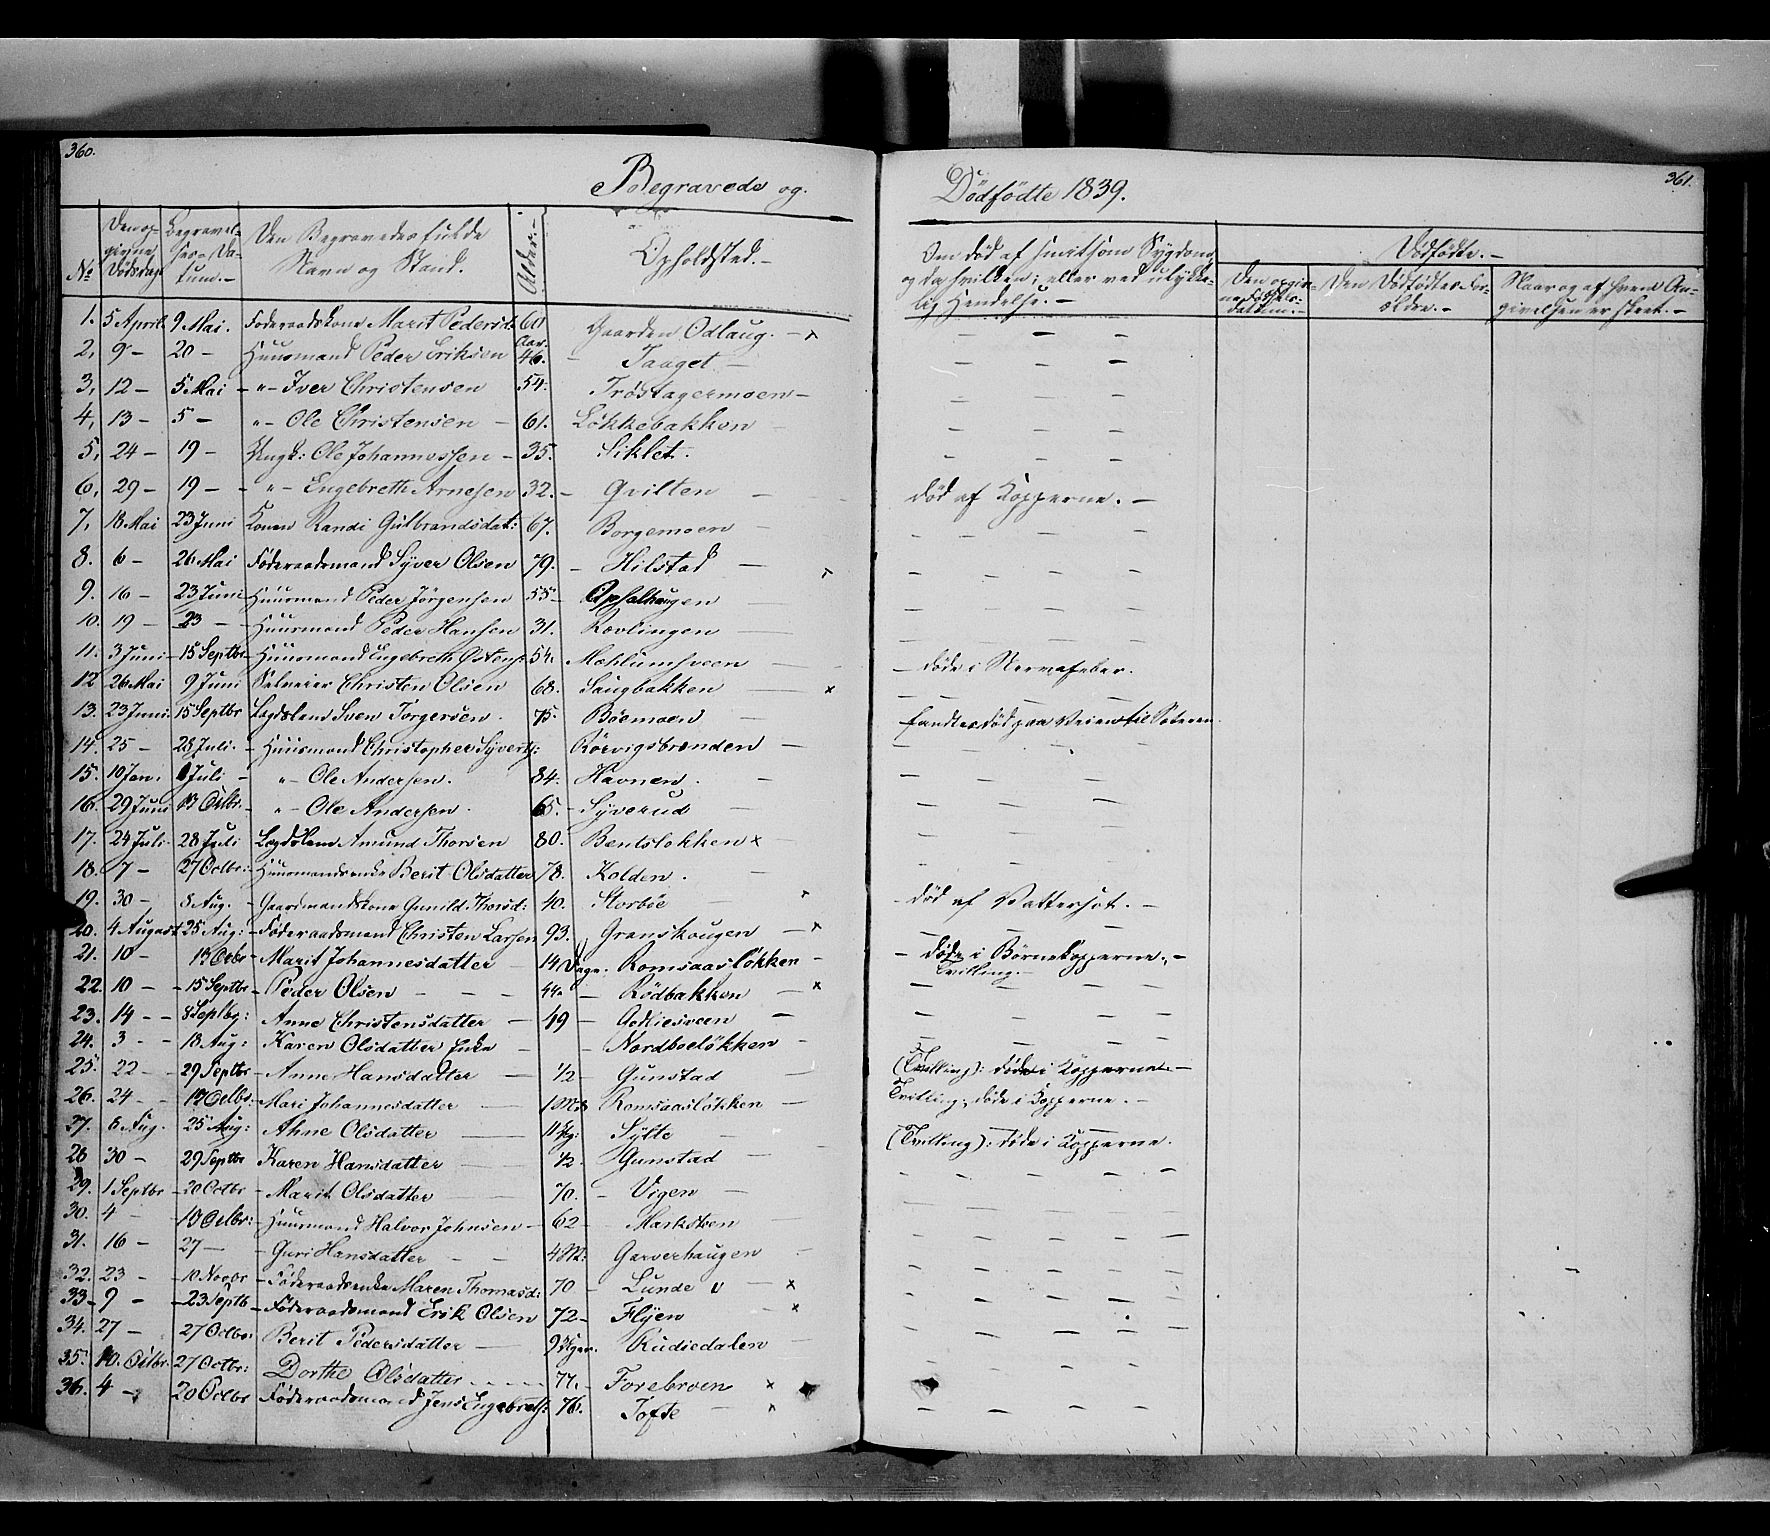 360.
Begravede og
Dödfödte 1839.
361.
No
Den op-
givne
Dödsdag
Begravel-
ses-Da-
tum.-
Den Begravedes fulde
Navn og Stand.
Alder.-
Opholdsted.-
Om död af smitsom Sygdom,
og da hvilken; eller ved ulykke-
lig Hendelse.-
Dödfödte.-
Den opgiv-
ne Födsels-
datum.-
Den Dödfödtes For-
ældre.-
Naar og af hvem An-
givelsen er skeet.-
1. 5 April. 9 Mai. Föderaadskone Marit Pedersd: 60 Aar. Gaarden Odlaug. - x
2, 9 - 20 - Huusmand Peder Eriksen 46. - Taaget -
3, 12 - 5 Mai - " - Iver Christensen 54: Tröstagermoen -
4, 13 - 5 - " - Ole Christensen - 61. Lökkebakken -
5, 24 - 19 - Ungk: Ole Johannessen - 35. Siklet.
6, 29 - 19 - - " - Engebreth Arnesen 32. - Qvilten - död af Kopperne. -
7, 18 Mai 23 Juni Konen Randi Gulbrandsdat: 67. Borgemoen -
8. 6 - 26 Mai Föderaadsmand Syver Olsen 79. - Hilstad - x
9. 16 - 23 Juni Huusmand Peder Jörgensen 55 - Opsalhaugen -
10. 19 - 23 - Huusmand Peder Hansen 31. Rovlingen -
11. 3 Juni - 15 Septbr - Huusmand Engebreth Östens: 54. Mæhlumsveen - - döde i Nervefeber.
12 26 Mai 9 Juni Selveier Christen Olsen 68. Saugbakken - x
13. 23 Juni. 15 Septbr Lægdslem Sven Torgersen. 75. Böemoen - fandtes död paa Veien til Sæteren.
14. 25 - 28 Juli. - Huusmand Christopher Syverts: Rörvigsbrænden -
15. 10 Jan. Juli - " - Ole Andersen. 84. Havnen. -
16. 29 Juni 13 Octbr. - " - Ole Andersen. 65. - Syverud -
17. 24 Juli. 28 Juli Lægdslem Amund Thorsen 80. Bentslokken x -
18. 7 - 27 Octbr: Huusmandsenke Berit Olsdatter 78. Kolden. -
19. 30 - 8 Aug. - Gaardmandskone Gunild Thorsd: 40. Storböe - x - död af Vattersot. -
20. 4 August 25 Aug: - Föderaadsmand Christen Larsen 93. Granskougen - x
21. 10 - 13 Octbr - Marit Johannesdatter - 14 Dage. Romsaaslökken - - döde i Börnekopperne. -
Tvilling. -
22. 10 - - 15 Septbr - Peder Olsen - - - 44 - Rödbakken - x
23. 14 - - 8 Septbr: Anne Christensdatter - 49 - Aadliesveen -
24. 3 - - 18 Aug: - Karen Olsdatter Enke - - Nordboelökken -
25. 22 - 29 Septbr - Anne Hansdatter - 1/2 - Gunstad - (Tvilling): döde i Kopperne. -
26. 24 - - 13 Octbr. - Mari Johannesdatter - 1 Md Romsaaslökken - Tvilling; döde i Kopperne. -
27. 6 Aug. 25 Aug: - Ahne Olsdatter - 11 Sylte - (Tvilling): döde i Kopperne.
28 30 - 29 Septbr Karen Hansdatter - 1/2 Gunstad -
29. 1 Septbr - 20 Octbr - Marit Olsdatter 70. - Vigen -
30. 4 - - 13 Octbr: - Huusmand Halvor Johnsen - 62 - Markstuen -
31. 16 - 27 - - Guri Hansdatter - - 4 M: Garverhaugen -
32. 23 - - 10 Novbr - Föderaadsenke Maren Thomasd: 70 - Lunde - x
33 - 9 - - 23 Septb - Föderaadsmand Erik Olsen 72 - Flyen - x
34. 27 - 27 Octbr: Berit Pedersdatter - 9 Rudiedalen -
35. 10. Octbr. 27 Octbr: Dorthe Olsdatter - - - 77. - Forebroen x
36. 4 - 20 Octbr Föderaadsmand Jens Engebreths: 76. Tofte - x